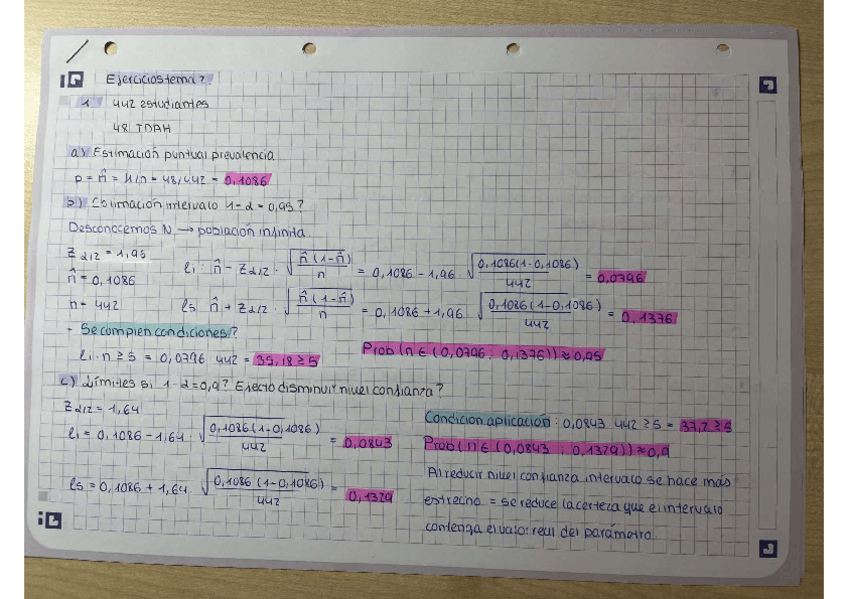 Ejercicios tema 7.
1 442 estudiantes
48 TDAH
a) Estimación puntual prevalencia
p = π̂ = x/n = 48/442 = 0,1086
b) Estimación intervalo 1-α = 0,95?
Desconocemos N → población infinita.
Z α/2 = 1,96
π̂ = 0,1086
n = 442
li: π̂ - Zα/2 · √(π̂(1-π̂)/n) = 0,1086 - 1,96 √(0,1086(1-0,1086)/442) = 0,0796
ls π̂ + Zα/2 · √(π̂(1-π̂)/n) = 0,1086 + 1,96 √(0,1086(1-0,1086)/442) = 0,1376
- Se complen condiciones?
li · n ≥ 5 = 0,0796 · 442 = 35,18 ≥ 5
Prob(π ∈ (0,0796 ; 0,1376)) ≈ 0,95
c) Límites si 1-α = 0,9? Efecto disminuir nivel confianza?
Zα/2 = 1,64
li = 0,1086 - 1,64 · √(0,1086(1-0,1086)/442) = 0,0843
ls = 0,1086 + 1,64 · √(0,1086(1-0,1086)/442) = 0,1329
Condicion aplicación: 0,0843 · 442 ≥ 5 = 37,2 ≥ 5
Prob(π ∈ (0,0843 ; 0,1329)) ≈ 0,9
Al reducir nivel confianza intervalo se hace más
estrecho = se reduce la certeza que el intervalo
contenga el valor real del parámetro.